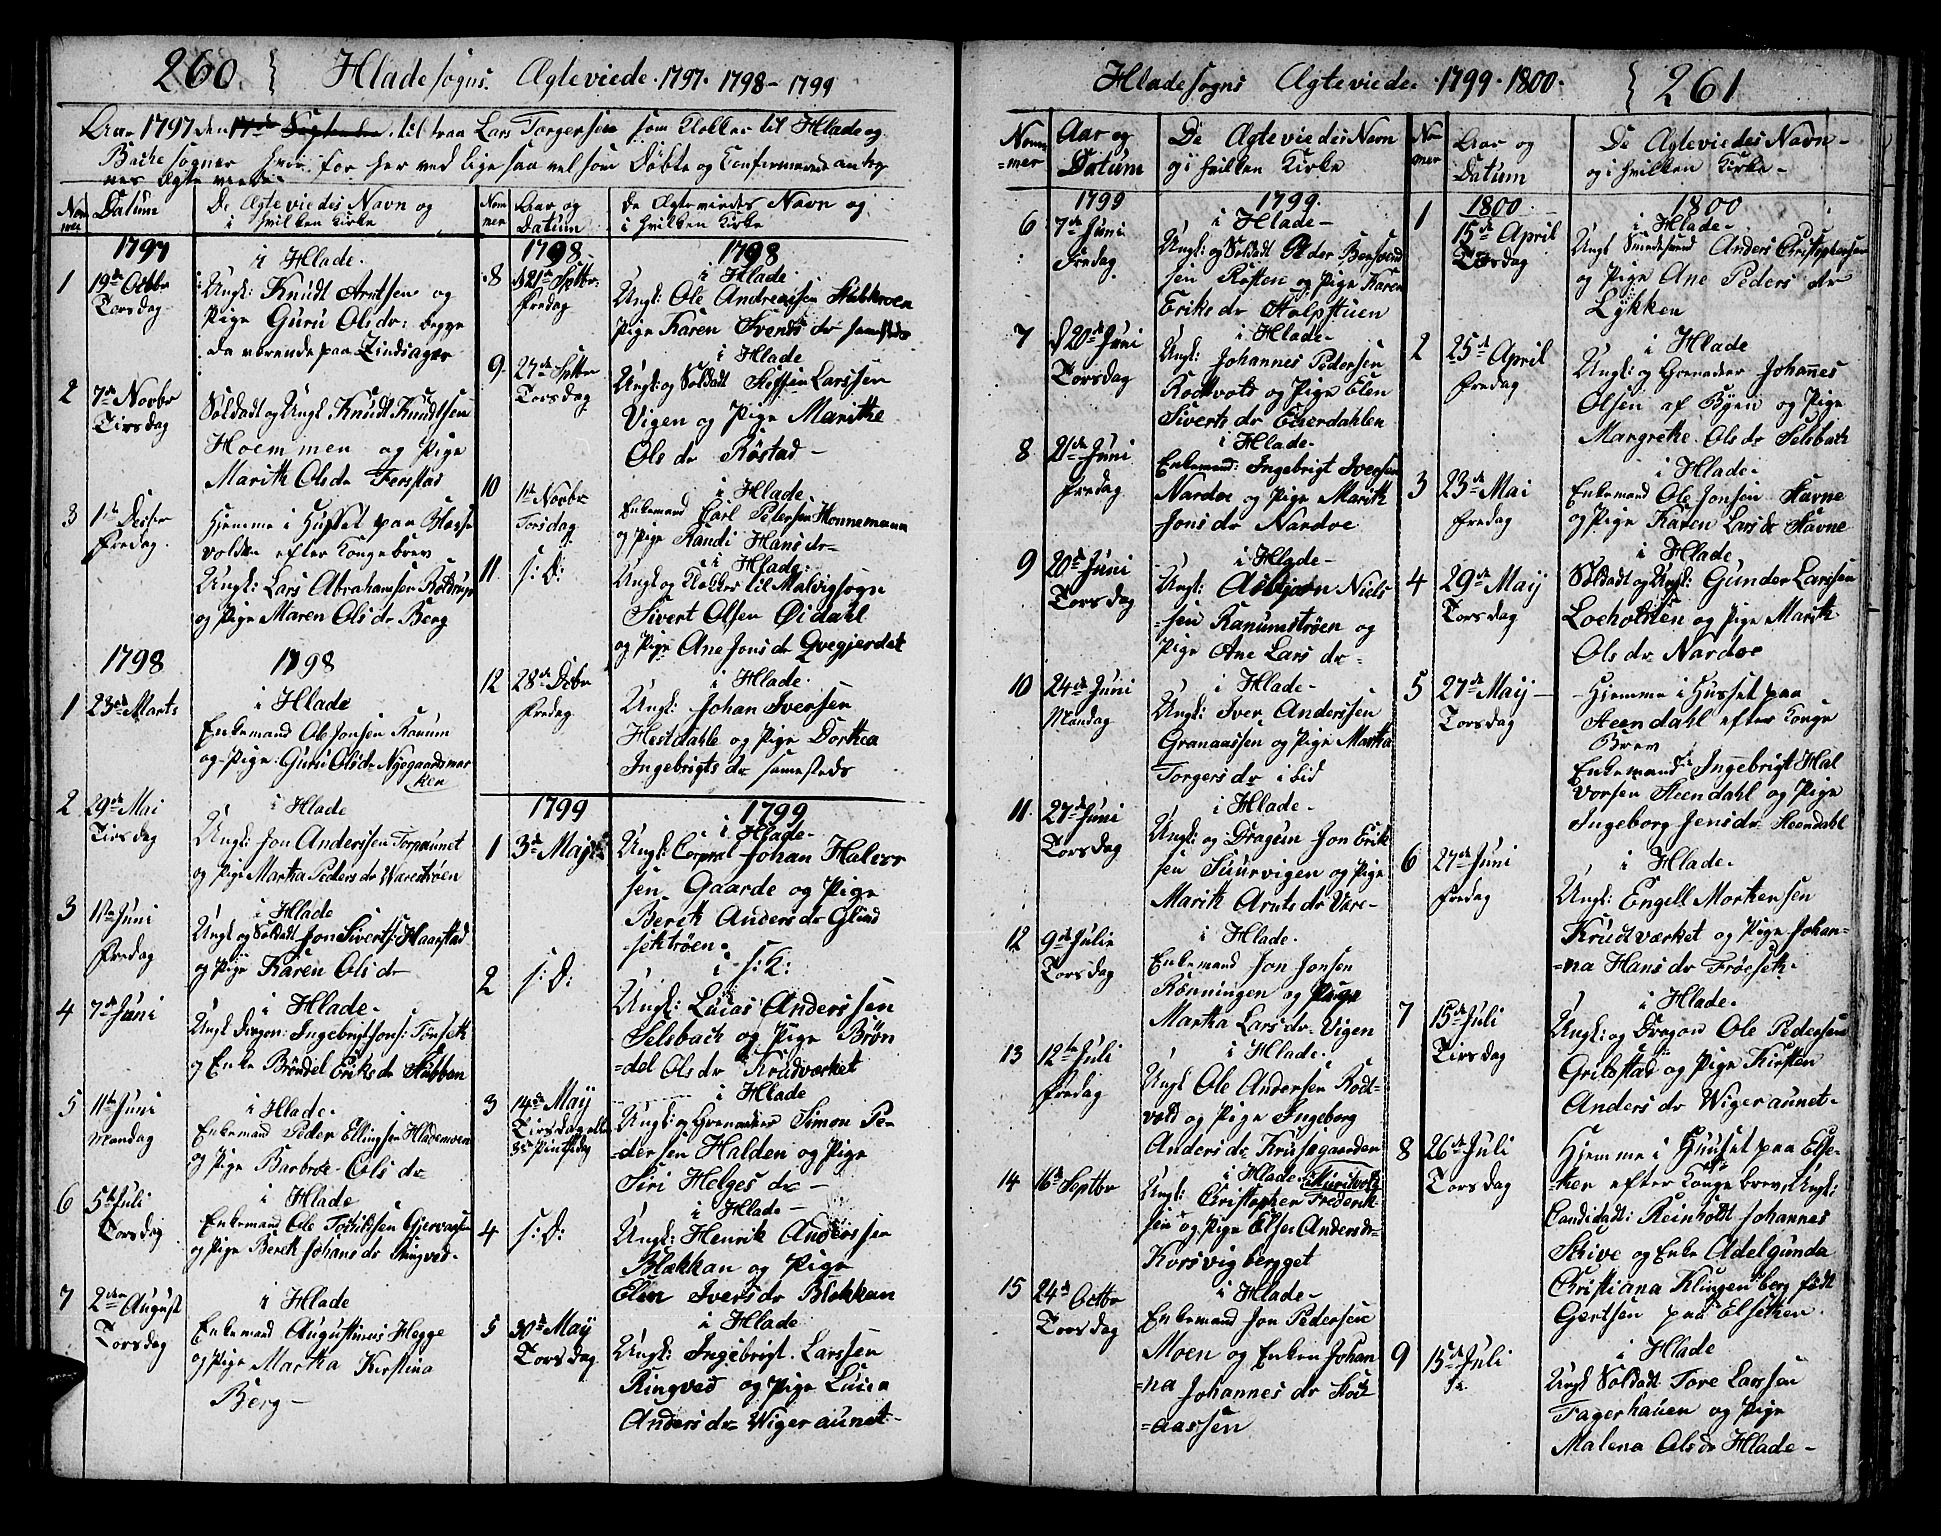 260. Hlade sogns. Ægteviede. 1797. 1798 - 1799
Aar 1797 den 17de Septembr. til traa Lars Torgersen som Klokker til Hlade og
Bache sogner hvor for her ved lige saa vel som Døbte og Confirmerede an teg
nes Ægte viede
Nom
mer
Datum
De Ægteviedes Navn og
i hvilken Kirke
1797
1
19de Octbr
Torsdag
i Hlade.
Ungk: Knudt Arntsen og
Pige Guru Olsdr: begge
da værende paa Lindsager
2
7de Novbr
Tirsdag
Soldadt og Ungk Knudt Knudtsen
Hoemmen og Pige
Marith Olsdr Ferstad
3
1te Decbr
Fredag.
Hjemme i Husset paa Blasse
volden efter Kongebrev
Ungk: Lars Abrahamsen
og Pige Maren Olsdr Berg
1798 1798
1
23de Marts
i Hlade
Enkemand Ole Jonsen Ranum
og Pige: Guru Olsdr Nyegaardsmar
ken
2
29de Mai
Tirsdag
i Hlade
Ungk: Jon Anderssen Torpaunet
og Pige Martha Peders dr Warestrøen
3
1te Juni
Fredag
i Hlade
Ungk og Soldadt Jon Siverts: Haarstad
og Pige Karen Olsdr
4
7de Juni
i Hlade.
Ungk Dragon: Ingebrigt Jons: Tønseth
og Enke Brøndel Eriksdr Stubban
5
11te Juni
Mandag
i Hlade.
Enkemand Peder Ellingsen Hlademoen
og Pige Barbroe Olsdr
6
5te Juli
Torsdag
i Hlade
Enkemand Ole Gjervassen
og Pige Bereth Johansdr Ringved.
7
2den August
Torsdag
i Hlade
Enkemand Augustinus Hegge
og Pige Martha Kirstina
Berg -
Nom
mer
Aar og
Datum
De Ægteviedes Navn og
i hvilken Kirke
1798. 1798
8
d 21de Septbr:
Fredag
i Hlade
Ungk: Ole Andreasen Stubkroen
Pige Karen Svends dr samesteds
9.
27de Septbr
Torsdag
i Hlade
Ungk: og Soldadt Steffen Larssen
Vigen og Pige Marithe
Ols dr Røstad -
10
1te Novbr
Torsdag
i Hlade
Enkemand Carl Petersen Honnemann
og Pige Randi Hans dr
11.
s: D:
i Hlade.
Ungk og Klokker til Malvigsogn
Sivert Olsen Øidahl
og Pige Ane Jonsdr Qvegjerdet
12
28de Decbr
Fredag
i Hlade.
Ungk: Johan Iversen
Hestdahle og Pige Dorthea
Ingebrigts dr samesteds
1799 1799
1
3de Maji
i Hlade.
Ungk: Corpral Johan Halvor
sen Gaarde og Pige
Bereth Andersdr Glind
sethrøen.
2
s: D:
i s: K:
Ungk: Lucas Anderssen
Selsbach og Pige Brøn
=del Ols dr Krudværket
3
14de Maij
Tirsdag eller
3de Pintsedag
i Hlade
Ungk: og Grenadeer Simon Pe
=dersen Halden og Pige
Siri Helges dr -
4
s: D:
i Hlade -
Ungk: Henrik Anderssen
Blækkan og Pige
Elen Ivers dr Blekkan
5
30te Maij
Torsdag.
i Hlade
Ungk: Ingebrigt. Larssen
Ringved og Pige Lucia
Anders dr Wigeraunet -
Hlade sogns Ægteviede. 1799. 1800. 261
Nom
=mer
Aar og
Datum
De Ægteviedes Navn
og i hvilken Kirke
1799 1799.
6
7de Juni
Fredag
i Hlade -
Ungk: og Soldadt Peder Bersvend
sen Røsten og Pige Karen
Eriks dr Stalpstuen
7
d 20de Juni
Torsdag
i Hlade -
Ungk: Johannes Pedersen
Rodtvolt og Pige Elen
Siverts dr Eierdahlen
8
21de Juni
Fredag
i Hlade.
Enkemand: Ingebrigt Iversen
Nardoe og Pige Marith
Jons dr Nardoe
9
20de Juni
Torsdag
i Hlade -
Ungk: Asbjørn Niels
=sen Ranumstrøen og
Pige Ane Lars dr -
10
24de Juni
Mandag
i Hlade -
Ungk: Iver Anderssen
Granaassen og Pige Martha
Torgers dr ibid
11.
27de Juni
Torsdag
i Hlade -
Ungk: og Dragun Jon Erik
sen Suurvigen og Pige
Marith Arnts dr Være -
12
9de Julie
Torsdag
i Hlade.
Enkemand Jon Jonsen
Rønningen og Pige
Martha Lars dr Vigen
13
12te Juli
Fredag
i Hlade.
Ungk Ole Andersen Rodt-
vold og Pige Ingeborg
Anders dr Krusegaarden
14
16de Septbr
i Hlade.
Ungk: Christopher Frederik-
sen og Pige Else Andersdr
Korsvigberget
15
24de Octbr
Torsdag
i Hlade -
Enkemand Jon Pedersen
Moen og Enken Johan
=na Johannes dr Stok
=aassen
No
mer
Aar og
Datum
De Ægteviedes Navn -
og i hvilken Kirke -
1800 1800
1
15de April
Tirsdag
i Hlade -
Ungk Smedesvend Anders Christophersen
og Pige Ane Peders dr
Lykken
2
25de April
Fredag
i Hlade
Ungk: og Grenadeer Johannes
Olsen af Byen og Pige
Margrethe Ols dr Selsbach
3
23de Mai
Fredag
i Hlade.
Enkemand Ole Jonsen Stavne
og Pige Karen Larsdr Stavne
4
29de Maij
Torsdag
i Hlade
Soldadt og Ungk: Gunder Larssen
Loeholtten og Pige Marith
Ols dr Nardoe
5
27de Maij -
Torsdag
Hjemme i Husset paa
Steendahl efter Konge
Brev
Enkemand Ingebrigt Hal
vorsen Steendahl og Pige
Ingeborg Jens dr Steendahl
6
27de Juni
Fredag
i Hlade.
Ungk: Engell Mortensen
Krudtværket og Pige Johan=
=na Hans dr Frøeseth.
7
15de Juli
Tirsdag
i Hlade.
Ungk: og Dragon Ole Pedersen
Grilstad og Pige Kirsten
Anders dr Wigeraunet.
8
26de Juli
Torsdag
Hjemme i Huuset paa Else-
=ker efter Konge brev, Ungk:
Candidadt: Reinholdt Johannes
Skive og Enke Adelgunda
Christiana Klingenberg født
Gjertsen paa Elsetken.
9
15de Juli
i Hlade
Ungk Soldadt Tore Larssen
Fagerhauen og Pige
Malena Ols dr Hlade -